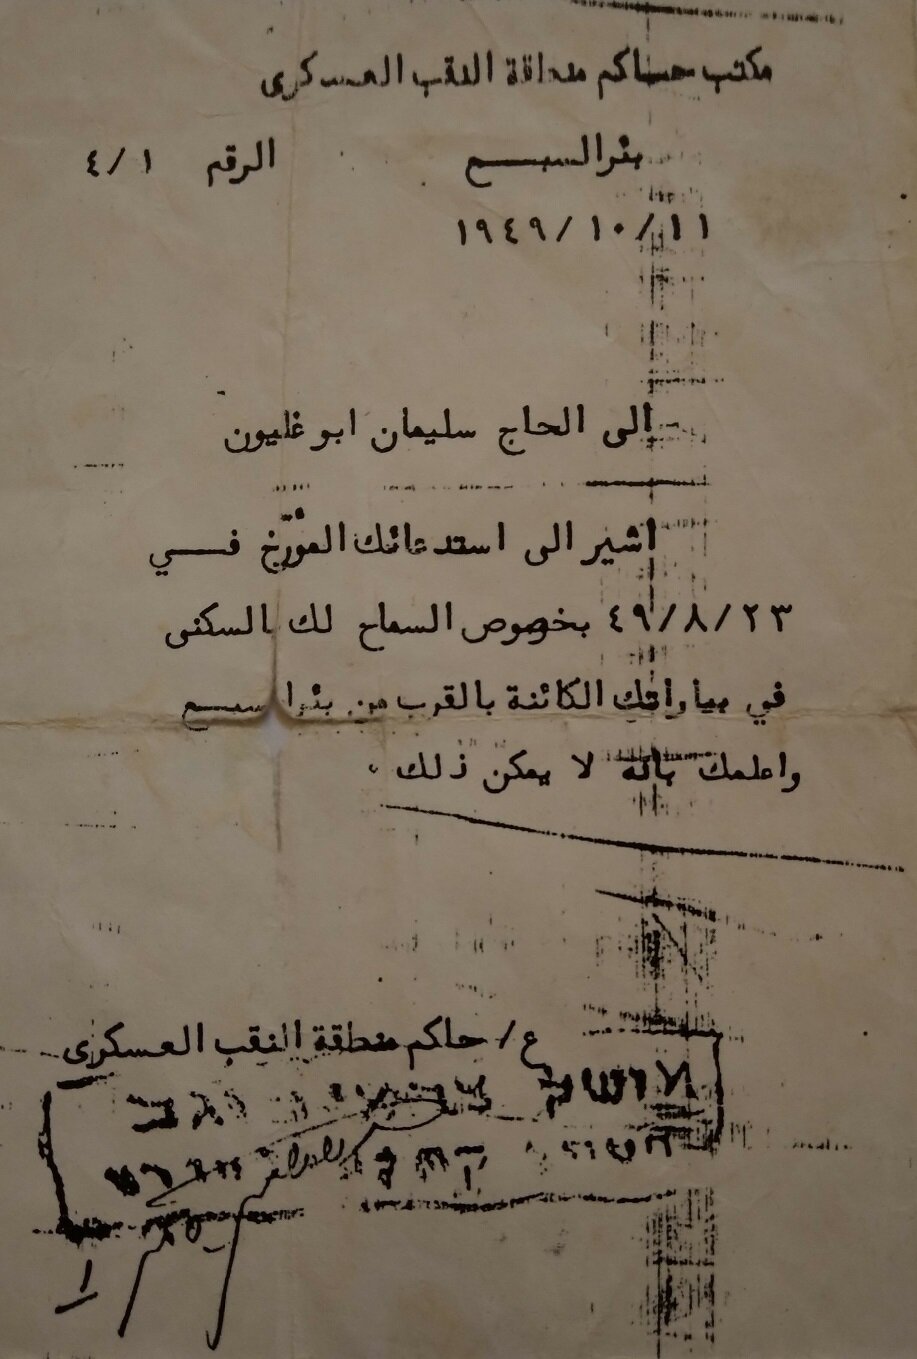 مكتب حساكم منطقة النقب العسكرى
بئرالسبع
الرقم ٤/١
١٩٤٩/١٠/١١
الى الحاج سليمان ابوغليون
اشير الى استدعائك المؤرّخ في
٤٩/٨/٢٣ بخصوص السماح لك بالسكنى
في بياراتك الكائنة بالقرب من بئرالسبع
واعلمك بانه لا يمكن ذلك .
ع/ حاكم منطقة النقب العسكرى